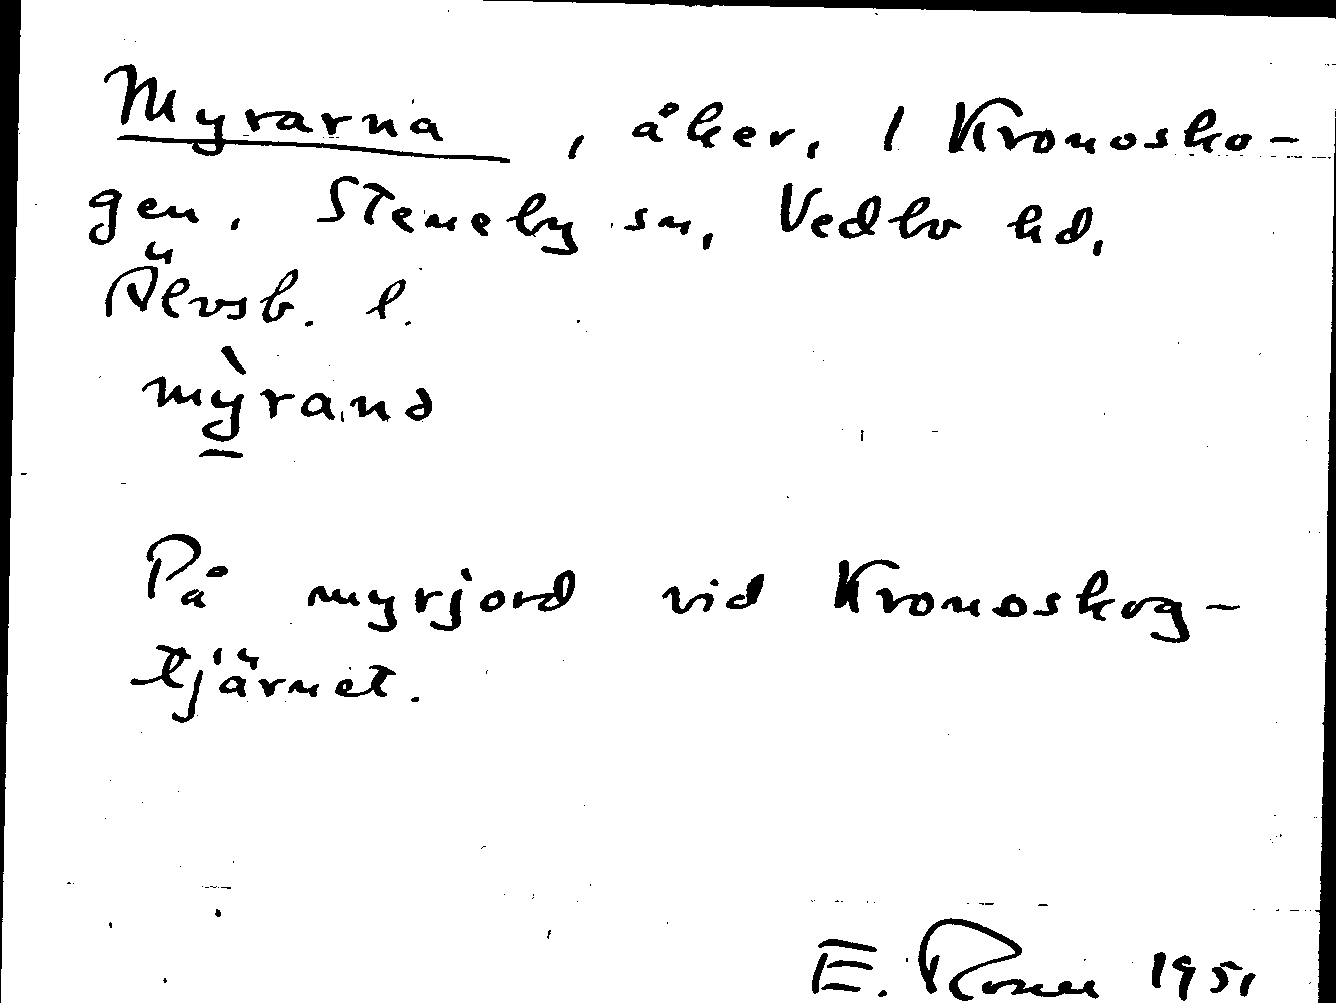 Myrarna, åker, 1 Kronosko-
gen, Steneby sn, Vedbo hd,
Älvsb. l.
mỳranə
På myrjord vid Kronoskog-
tjärnet.
E. Rosell 1951